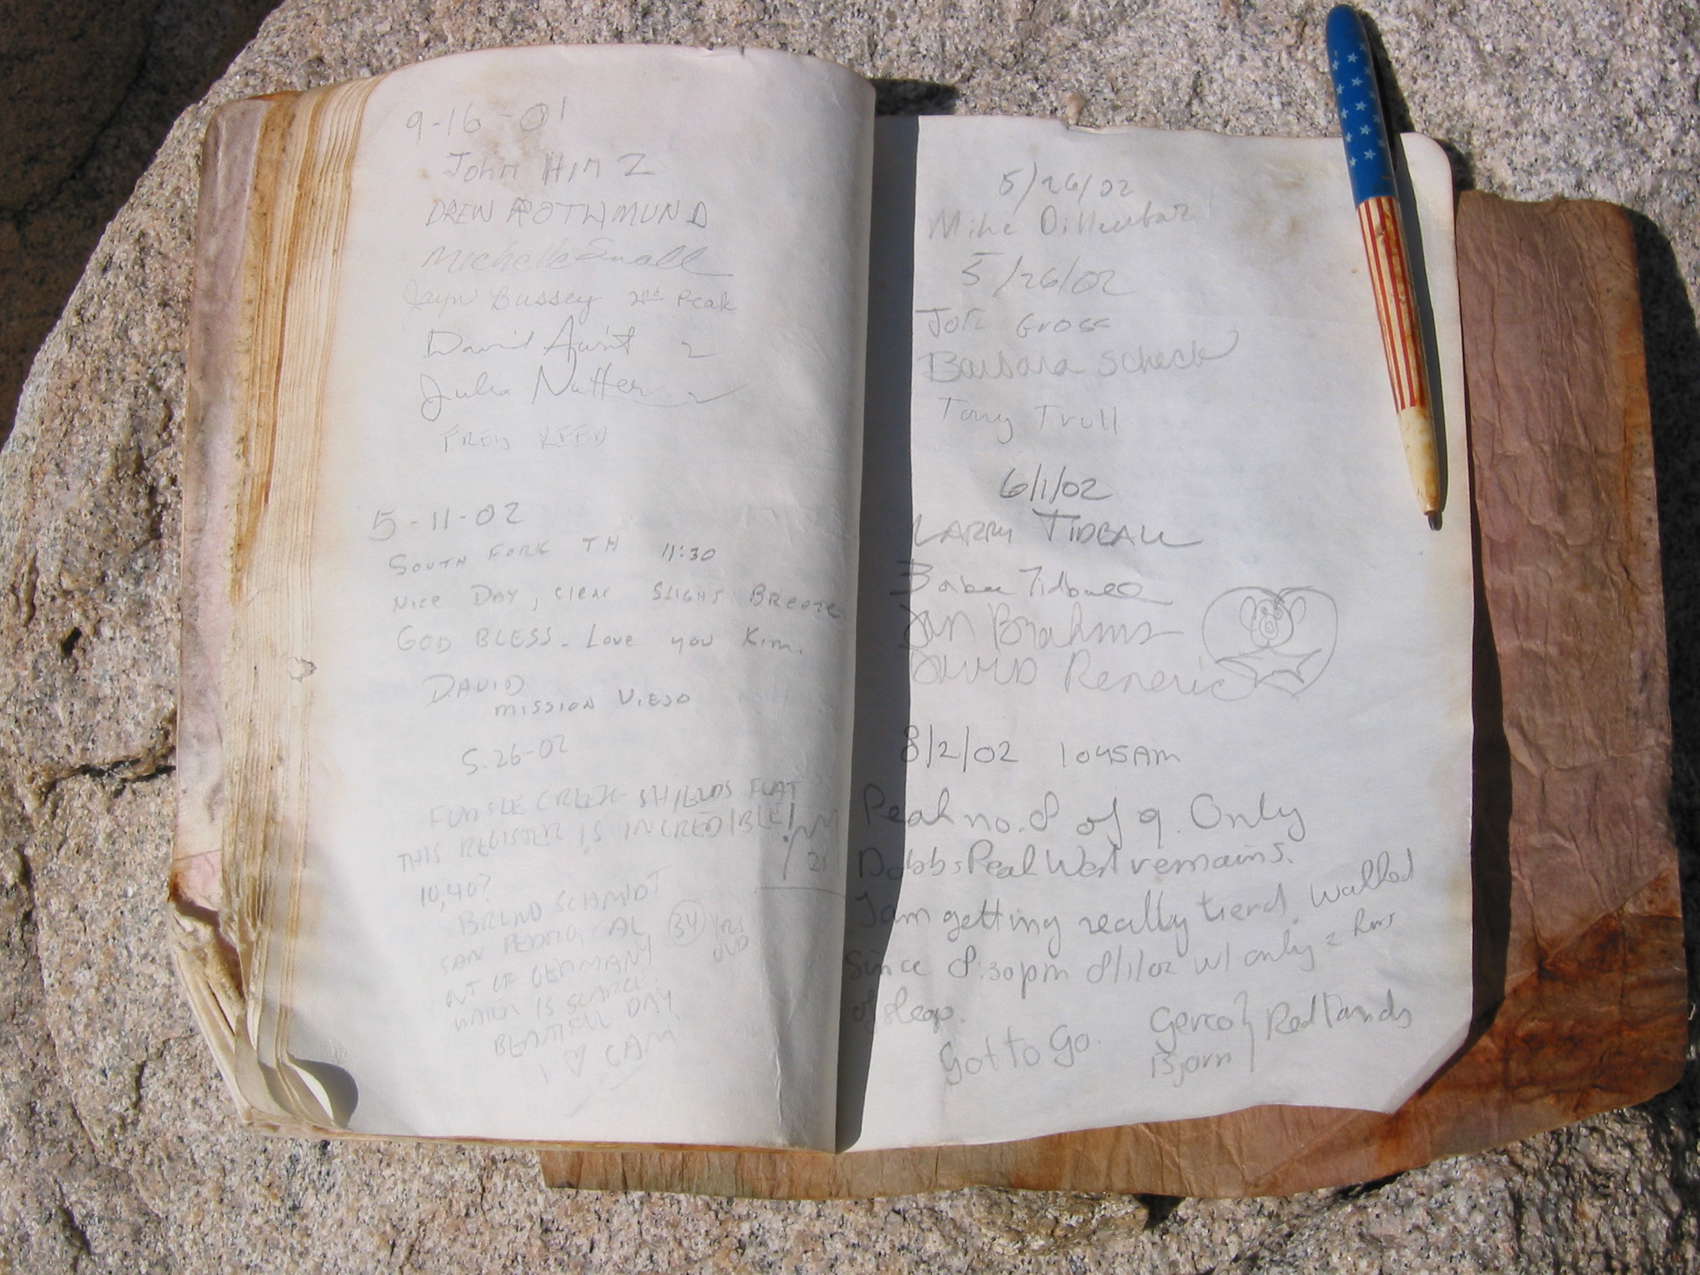 9-16-01
John Hinz
DREW ROTHMUND
Michelle Small
Jayn Bussey 2nd Peak
David 2
Julia Nutter 2
FRED REED
5-11-02
SOUTH FORK TH 11:30
NICE DAY, CLEAR SLIGHT BREEZE
GOD BLESS - Love you Kim.
DAVID
MISSION VIEJO
5.26-02
CREEK - SHIELDS FLAT
THIS REGISTER IS INCREDIBLE!
10,40?
SCHMIDT
SAN 34 YRS
OUT OF GERMANY OLD
WATER IS SCARCE.
BEAUTIFUL DAY
I ♡ CAM
5/26/02
Mike
5/26/02
Joe Gross
Barbara Scheck
Tony Trull
6/1/02
LARRY TIDBALL
Barbee Tidball
Jan Brahms
DAVID Reneric
8/2/02 1045AM
Peak no. 8 of 9. Only
Dobbs Peak West remains.
I am getting really tierd. Walked
since 8:30pm 8/1/02 w/ only 2 hrs
of sleep.
Got to Go. Gerco } Redlands
Bjorn